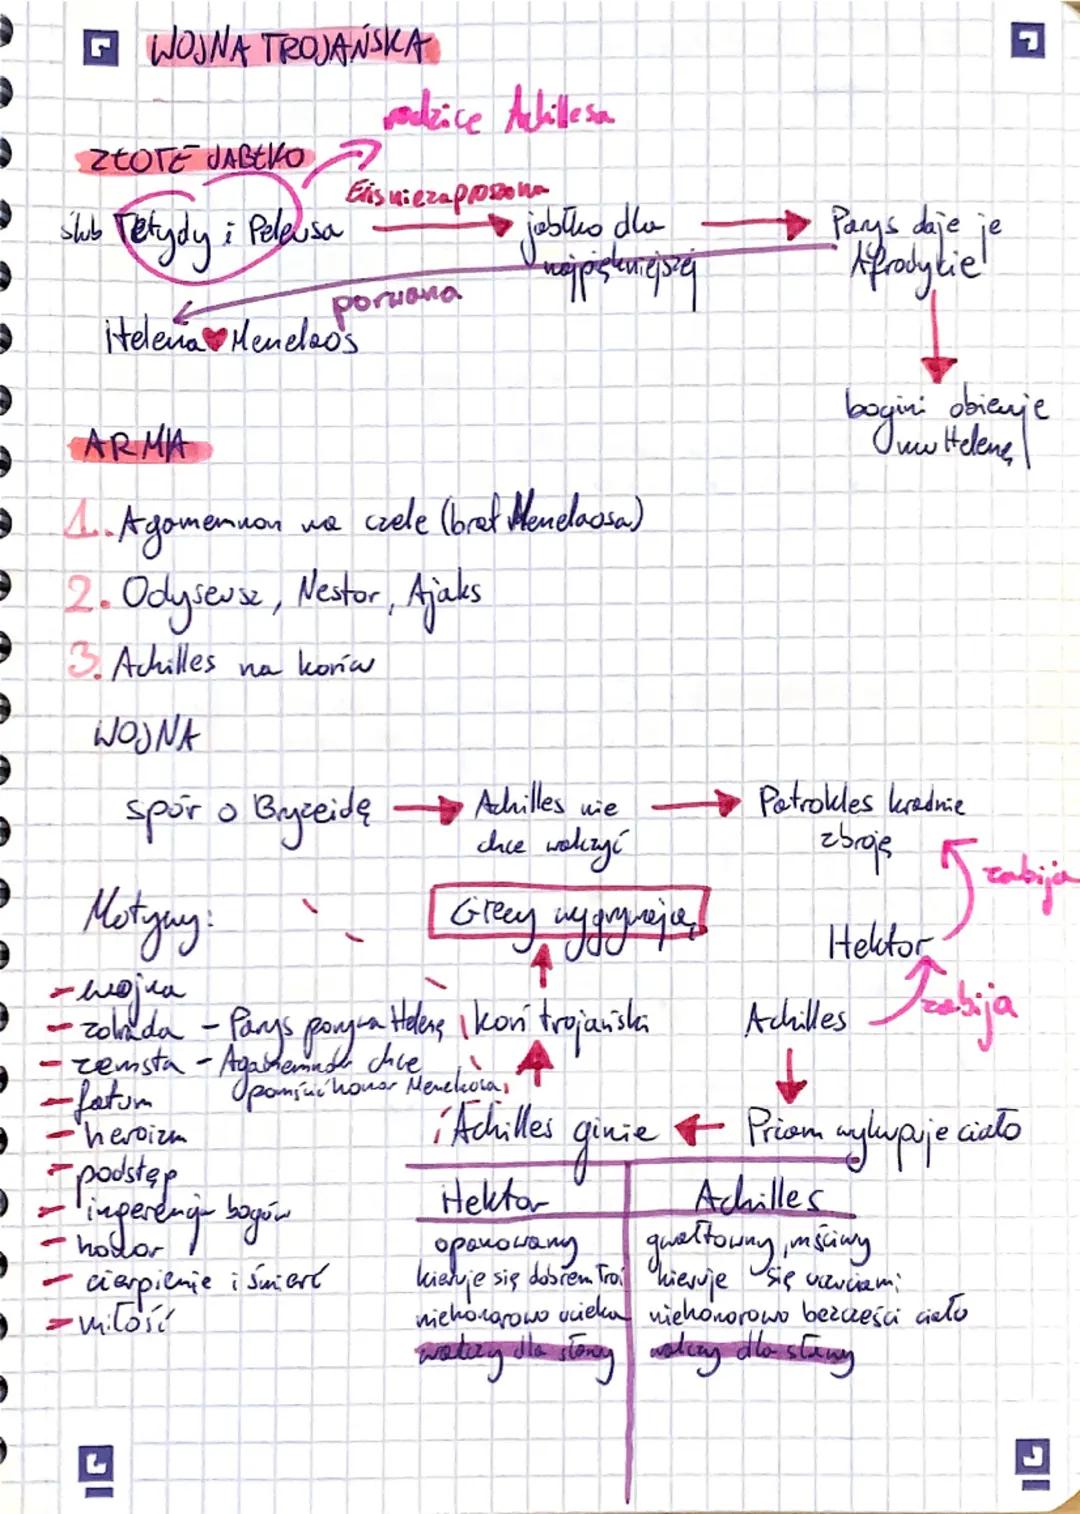 WOJNA TROJAŃSKA
rodzice Achillesa
ZŁOTE JABŁKO
Eris niezaproszona
ślub Tetydy i Peleusa
jabłko dla
najpiękniejszej
Parys daje je
Afrodycie!
porwana
Helena ♥ Menelaos
bogini obiecuje
mu Helenę
ARMIA
1. Agamemnon na czele (brat Menelaosa)
2. Odyseusz, Nestor, Ajaks
3. Achilles na końcu
WOJNA
spór o Bryzeidę
Achilles nie
chce walczyć
Patrokles kradnie
zbroję
zabija
Hektor
zabija
Achilles
Priam wykupuje ciało
Achilles ginie
koń trojański
Grecy wygrywają
Motywy:
- wojna
- zdrada - Parys porywa Helenę
- zemsta - Agamemnon chce
pomścić honor Menelaosa
- fatum
- heroizm
- podstęp
- ingerencja bogów
- honor
- cierpienie i śmierć
- miłość
Hektor
Achilles
opanowany
gwałtowny, mściwy
kieruje się dobrem Troi
kieruje się uczuciami
niehonorowo ucieka
niehonorowo bezcześci ciało
walczy dla sławy
walczy dla sławy